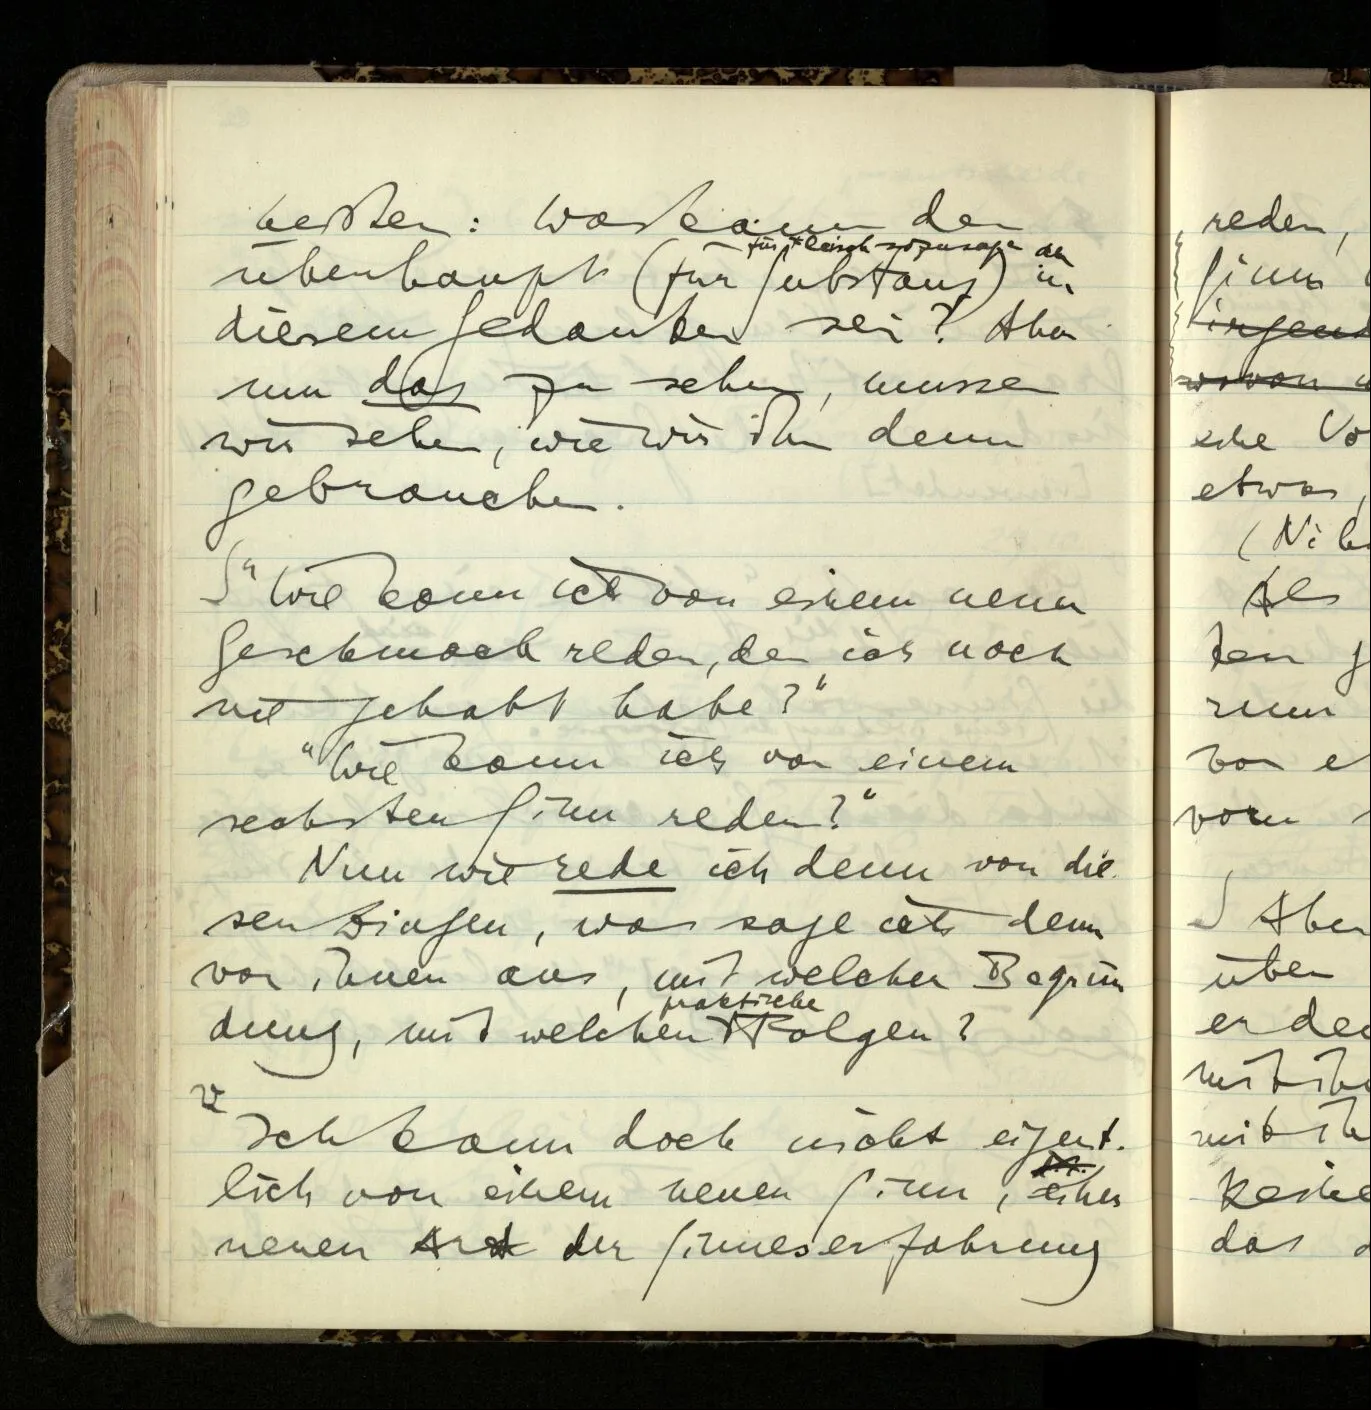 heißen: Was kann denn
für Fleisch sozusagen an
überhaupt (für Substanz) in
diesem Gedanken sei? Aber
um das zu sehen, müssen
wir sehen, wie wir ihn denn
gebrauchen.
S "Wie kann ich von einem neuen
Geschmack reden, den ich noch
nie gehabt habe?"
"Wie kann ich von einem
sechsten Sinn reden?"
Nun wie rede ich denn von die
sen Dingen, was sage ich denn
von ihnen aus, mit welcher Begrün
praktischen
dung, mit welchen Folgen?
Ich kann doch nicht eigent-
lich von einem neuen Sinn, einer
neuen Art der Sinneserfahrung
reden,
Sinn
irgend
wovon
sche Vo
etwas,
(Ni
Als
ten
von e
vorn
S Aber
über
er de
mit ih
mit ih
keine
das